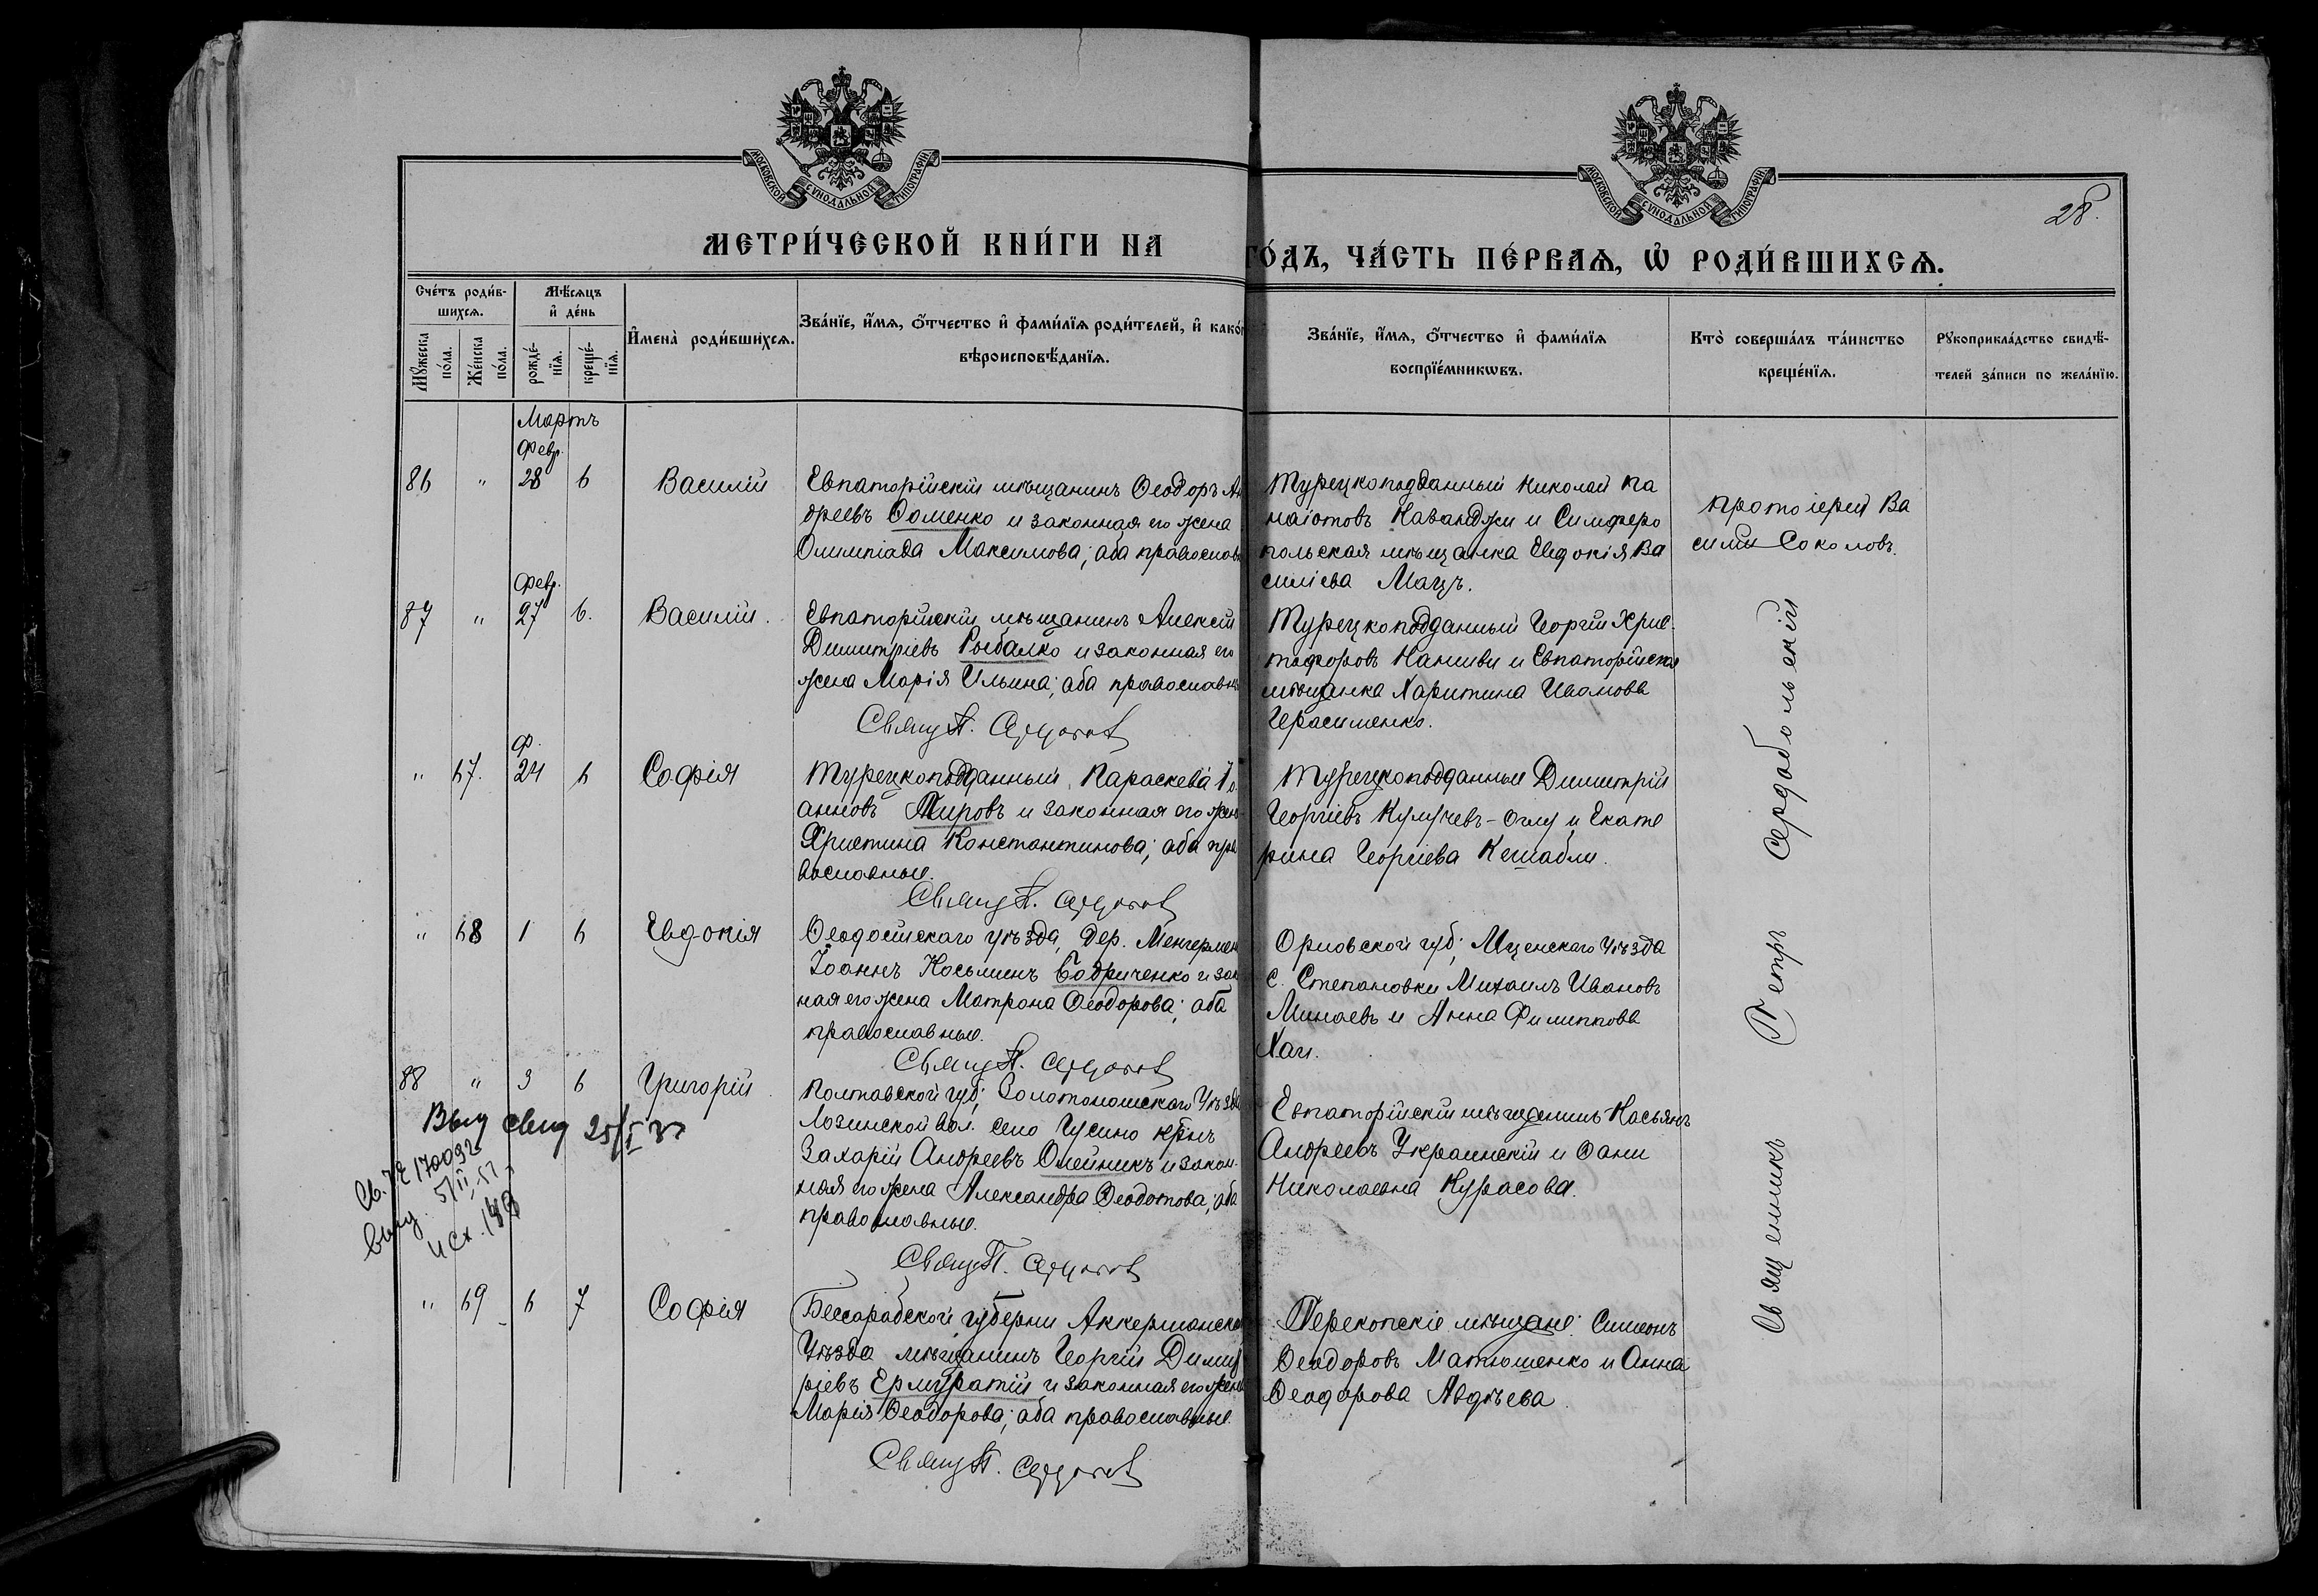 МОСКОВСКОЙ СѴНОДАЛЬНОЙ ТИПОГРАФІИ
МОСКОВСКОЙ СѴНОДАЛЬНОЙ ТИПОГРАФІИ
28.
МЕТРИ́ЧЕСКОЙ КНИ́ГИ НА ГО́ДЪ, ЧА́СТЬ ПЕ́РВАѦ, Ѡ҆ РОДИ́ВШИХСѦ.
Сче́тъ роди́в-
шихсѧ.
Мѣ́сѧцъ
и҆ де́нь
Мꙋ́жеска
по́ла.
Же́нска
по́ла.
рожде́-
нїѧ.
креще́-
нїѧ.
И҆мена̀ роди́вшихсѧ.
Зва́нїе, и҆́мѧ, ѻ҆́тчество и҆ фами́лїѧ роди́телей, и҆ како́г
вѣроисповѣ́данїѧ.
Зва́нїе, и҆́мѧ, ѻ҆́тчество и҆ фами́лїѧ
воспрїе́мникѡвъ.
Кто̀ соверша́лъ та́инство
креще́нїѧ.
Рꙋкоприкла́дство свидѣ́-
телей за́писи по жела́нїю.
Мартъ
Февр.
86 " 28 6 Василій
Евпаторійскій мѣщанинъ Ѳеодоръ Ан
дреевъ Ѳоменко и законная его жена
Олимпіада Максимова; оба православн
Турецкоподданный Николай Па
наіотовъ Каванджи и Симферо
польская мѣщанка Евдокія Ва
силіева Мацъ.
Протоіерей Ва
силій Соколовъ.
Февр.
87 " 27 6. Василій.
Евпаторійскій мѣщанинъ Алексій
Димитріевъ Рыбалко и законная его
жена Марія Ильина; оба православн
Свящ. П.
Турецкоподданный Георгій Хрис-
тофоровъ Наниви и Евпаторійская
мѣщанка Харитина Иванова
Герасименко.
Ф.
" 67. 24 6 Софія
Турецкоподданный Параскева Іо
анновъ Пировъ и законная его жен
Христина Константинова; оба пра
вославные.
Свящ. П.
Турецкоподданные Димитрій
Георгіевъ Кулучевъ-Оглу и Екате
рина Георгіева Кешабли.
" 68 1 6 Евдокія
Ѳеодосійскаго уѣзда, дер. Менгермен
Іоаннъ Косьминъ Бодриченко и зак
ная его жена Матрона Ѳеодорова; оба
православные.
Свящ. П.
Орловской губ; Мценскаго уѣзда
с. Степановки Михаилъ Ивановъ
Минаевъ и Анна Филиппова
Хаг.
88 " 3 6 Григорій.
Полтавской губ; Золотоношскаго уѣзда
Лозинской вол. село Гусино крнъ
Захарій Андреевъ Олейникъ и закон-
ная его жена Александра Ѳеодотова; оба
православные.
Свящ. П.
Евпаторійскій мѣщанинъ Касьянъ
Андреевъ Украинскій и Ѳани
Николаевна Курасова.
Выд свид 25/I
Св. 170092
выд. 5/II 51
исх. 148
" 69 6 7 Софія
Бессарабской губерни Аккерманска
уѣзда мѣщанинъ Георгій Димит
ріевъ Ермуратій и законная его жена
Марія Ѳеодорова; оба православные.
Свящ. П.
Перекопскіе мѣщане: Симеонъ
Ѳеодоровъ Матюшенко и Анна
Ѳеодорова Авдѣева.
Священникъ Петръ Сердобольскій